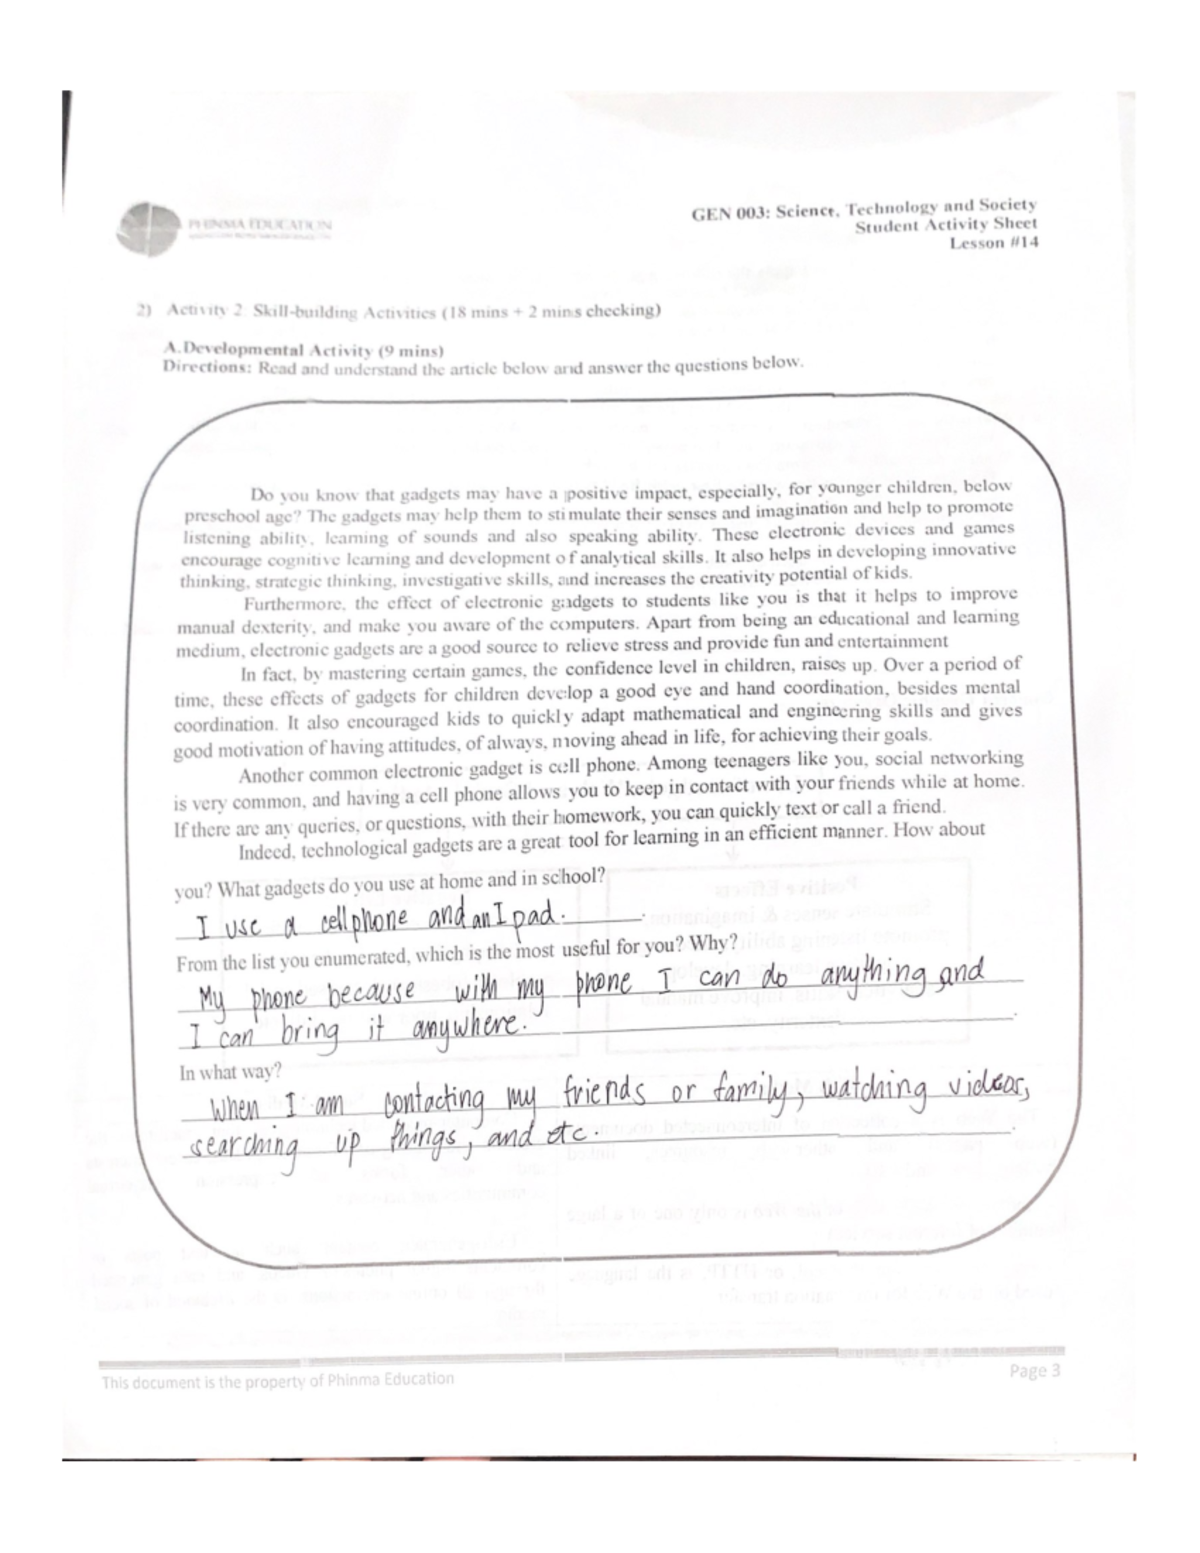 PHINMA EDUCATION
GEN 003: Science, Technology and Society
Student Activity Sheet
Lesson #14
2) Activity 2: Skill-building Activities (18 mins + 2 mins checking)
A.Developmental Activity (9 mins)
Directions: Read and understand the article below and answer the questions below.
Do you know that gadgets may have a positive impact, especially, for younger children, below
preschool age? The gadgets may help them to stimulate their senses and imagination and help to promote
listening ability, learning of sounds and also speaking ability. These electronic devices and games
encourage cognitive learning and development of analytical skills. It also helps in developing innovative
thinking, strategic thinking, investigative skills, and increases the creativity potential of kids.
Furthermore, the effect of electronic gadgets to students like you is that it helps to improve
manual dexterity, and make you aware of the computers. Apart from being an educational and learning
medium, electronic gadgets are a good source to relieve stress and provide fun and entertainment
In fact, by mastering certain games, the confidence level in children, raises up. Over a period of
time, these effects of gadgets for children develop a good eye and hand coordination, besides mental
coordination. It also encouraged kids to quickly adapt mathematical and engineering skills and gives
good motivation of having attitudes, of always, moving ahead in life, for achieving their goals.
Another common electronic gadget is cell phone. Among teenagers like you, social networking
is very common, and having a cell phone allows you to keep in contact with your friends while at home.
If there are any queries, or questions, with their homework, you can quickly text or call a friend.
Indeed, technological gadgets are a great tool for learning in an efficient manner. How about
you? What gadgets do you use at home and in school?
I use a cellphone and an Ipad.
From the list you enumerated, which is the most useful for you? Why?
My phone because with my phone I can do anything and
I can bring it anywhere.
In what way?
When I am contacting my friends or family, watching videos,
searching up things, and etc.
This document is the property of Phinma Education
Page 3